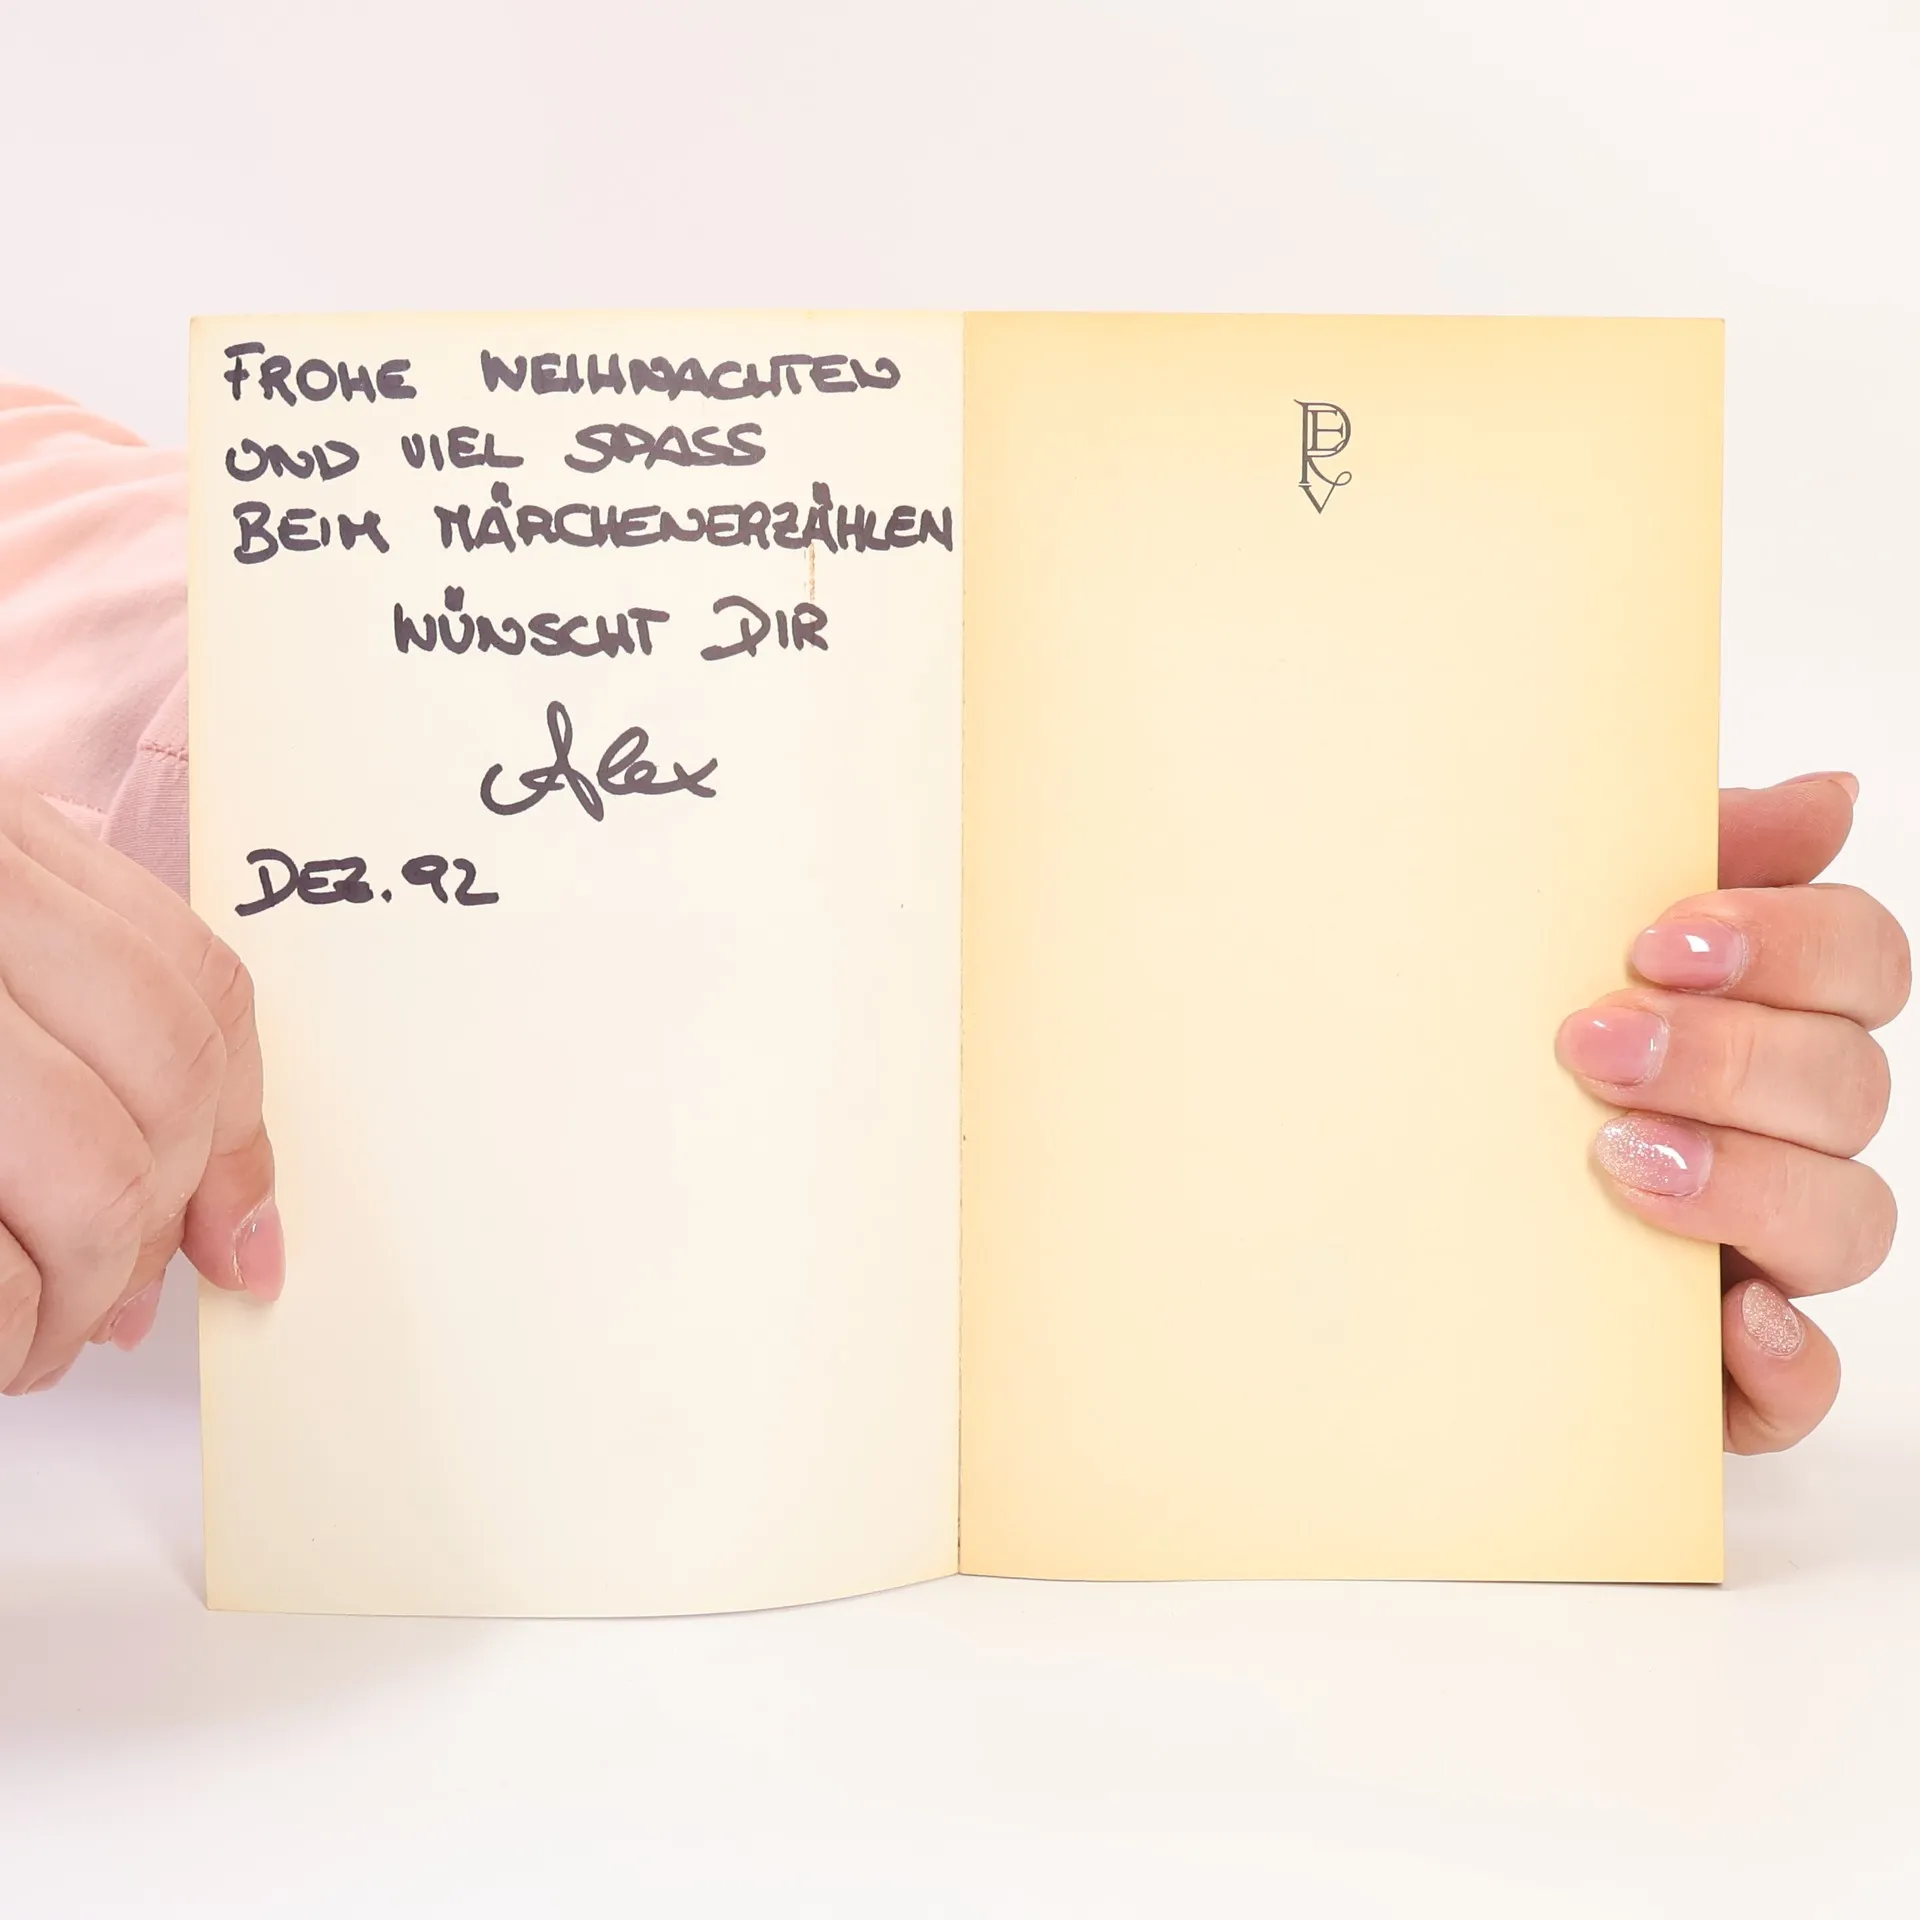 FROHE WEIHNACHTEN
UND VIEL SPASS
BEIM MÄRCHENERZÄHLEN
WÜNSCHT DIR
Alex
DEZ. 92